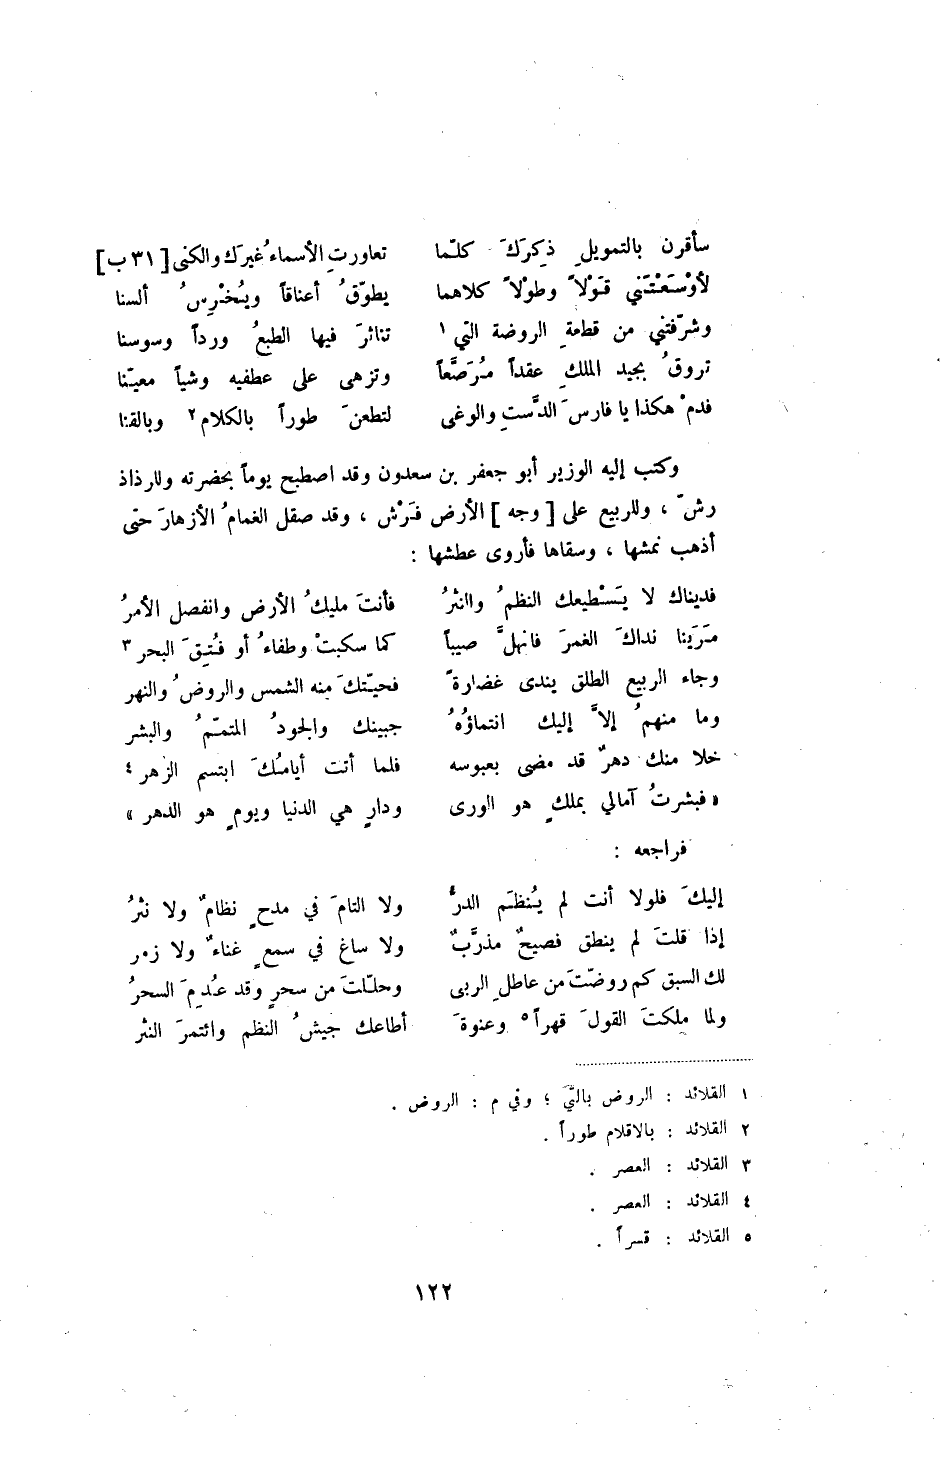 سأقرن بالتمويلِ ذكِركَ كلّما تعاورتِ الأسماءُ غيرَك والكنى [ ٣١ ب ]
لأوْسَعْتَني قَوْلاً وطوْلاً كلاهما يطوّقُ أعناقاً ويُخْرِسُ ألسنا
وشرّفتني من قطعةِ الروضة التي ١ تناثرَ فيها الطبعُ ورداً وسوسنا
تروقُ بجيد الملكِ عقداً مُرَصَّعاً وتزهى على عطفيه وشياً معيّنا
فدمْ هكذا يا فارسَ الدَّستِ والوغى لتطعنَ طوراً بالكلام ٢ وبالقنا
وكتب إليه الوزير أبو جعفر بن سعدون وقد اصطبح يوماً بحضرته وللرذاذ
رشّ ، وللربيع على [ وجه ] الأرض فَرْش ، وقد صقل الغمامُ الأزهارَ حتى
أذهب نمشها ، وسقاها فأروى عطشها :
فديناك لا يَسْطيعك النظمُ والنثرُ فأنتَ مليكُ الأرض وانفصل الأمرُ
مَرَيْنا نداكَ الغمرَ فانهلَّ صيباً كما سكبتْ وطفاءُ أو فُتِقَ البحر ٣
وجاء الربيع الطلق يندى غضارةً فحيّتكَ منه الشمس والروضُ والنهر
وما منهمُ إلاَّ إليك انتماؤُهُ جبينك والجودُ المتمّمُ والبشر
خلا منك دهرٌ قد مضى بعبوسه فلما أتت أيامُكَ ابتسم الزهر ٤
« فبشرتُ آمالي بملكٍ هو الورى ودارٍ هي الدنيا ويومٍ هو الدهر »
فراجعه :
إليكَ فلولا أنت لم يُنظَم الدرُّ ولا التامَ في مدحٍ نظامٌ ولا نثرُ
إذا قلتَ لم ينطق فصيحٌ مذرَّبٌ ولا ساغ في سمعٍ غناءٌ ولا زمر
لك السبق كم روضتَ من عاطلِ الربى وحلّلتَ من سحرٍ وقد عُدِمَ السحرُ
ولما ملكتَ القولَ قهراً ٥ وعنوةَ أطاعك جيشُ النظم وائتمرَ النثر
١ القلائد : الروض بالتيّ ؛ وفي م : الروض .
٢ القلائد : بالاقلام طوراً .
٣ القلائد : العصر .
٤ القلائد : العصر .
٥ القلائد : قسراً .
١٢٢